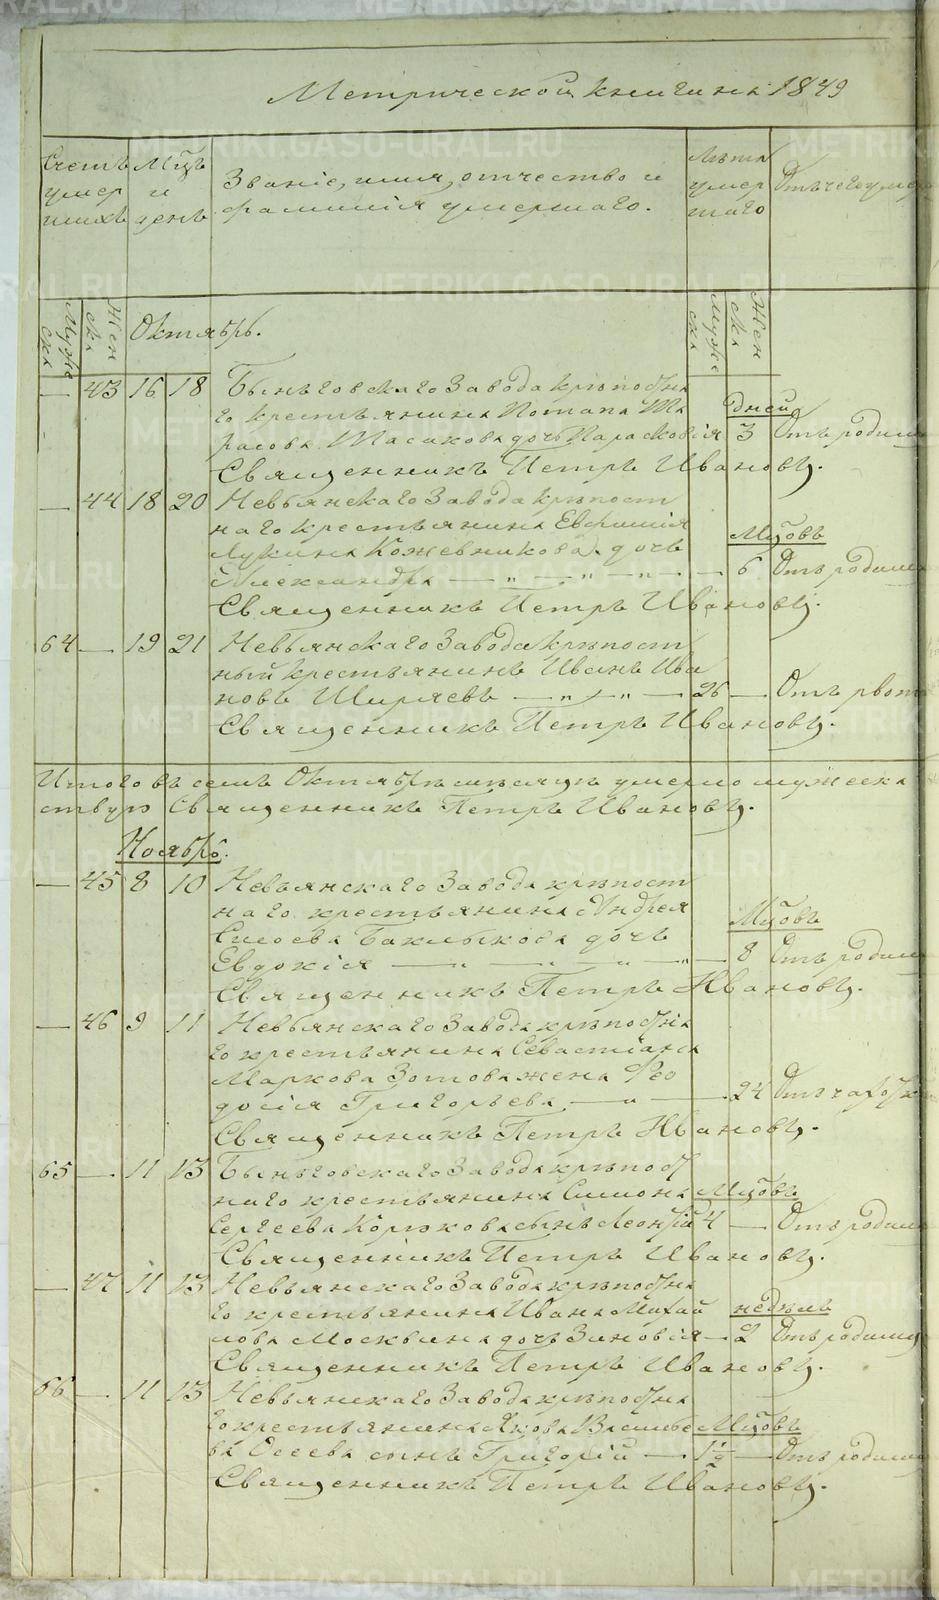 Метрической книги на 1849
Счетъ умер шихъ
Мцъ и день
Званіе, имя, отчество и фамилія умершаго.
Лѣта умер шаго
Отъ чего умер
Муже ска
Жен ска
Октябрь.
Муже ска
Жен ска
— 43 16 18 Быньговскаго Завода крѣпостна
го крестьянина Потапа Та дней
расова дочь Парасковія 3 Отъ родим
Священникъ Петръ Ивановъ.
— 44 18 20 Невьянскаго Завода крѣпост
наго крестьянина Евфимія
Лукина Кожевникова дочь Мцовъ
Александра — „ — „ — „ — 6 Отъ родим
Священникъ Петръ Ивановъ.
64 — 19 21 Невьянскаго Завода крѣпост
ный крестьянинъ Иванъ Ива
новъ Ширяевъ — „ — „ — 26 — Отъ рвот
Священникъ Петръ Ивановъ.
Итого въ семъ Октябрѣ мѣсяцѣ умерло мужеска
Священникъ Петръ Ивановъ.
Ноябрь.
— 45 8 10 Невьянскаго Завода крѣпост
наго крестьянина Андрея Мцовъ
Сысоева дочь
Евдокія — „ — „ — „ — „ — 8 Отъ родим
Священникъ Петръ Ивановъ.
— 46 9 11 Невьянскаго Завода крѣпостна
го крестьянина Севастіана
Маркова Зотова жена Фео
досія Григорьева — „ — 24 Отъ чахотк
Священникъ Петръ Ивановъ.
65 — 11 13 Быньговскаго Завода крѣпост
наго крестьянина Симона Мцовъ
Сергеева Корюкова сынъ Леонтій 4 — Отъ родим
Священникъ Петръ Ивановъ.
— 47 11 13 Невьянскаго Завода крѣпостна
го крестьянина Ивана Михай недѣль
лова Москвина дочь Зиновія — 2 Отъ родимц
Священникъ Петръ Ивановъ.
66 — 11 13 Невьянскаго Завода крѣпостна
го крестьянина Якова Василье Мцовъ
ва Осеева сынъ Григорій — 1½ — Отъ родимц
Священникъ Петръ Ивановъ.
METRIKI.GASO-URAL.RU